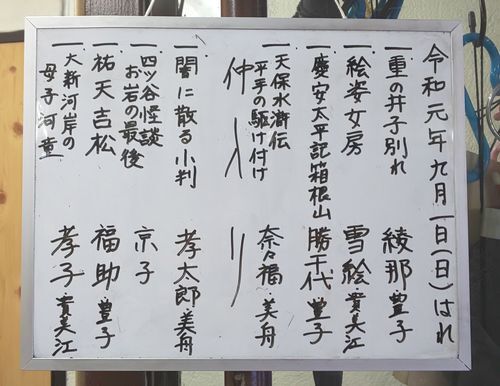 令和元年九月一日(日)はれ
一 重の井子別れ 綾那 豊子
一 絵姿女房 雪絵 貴美江
一 慶安太平記 箱根山 勝千代 豊子
一 天保水滸伝 平手の駆け付け 奈々福 美舟
仲入り
一 闇に散る小判 孝太郎 美舟
一 四ツ谷怪談 お岩の最後 京子
一 祐天吉松 福助 豊子
一 大新河岸の母子河童 孝子 貴美江